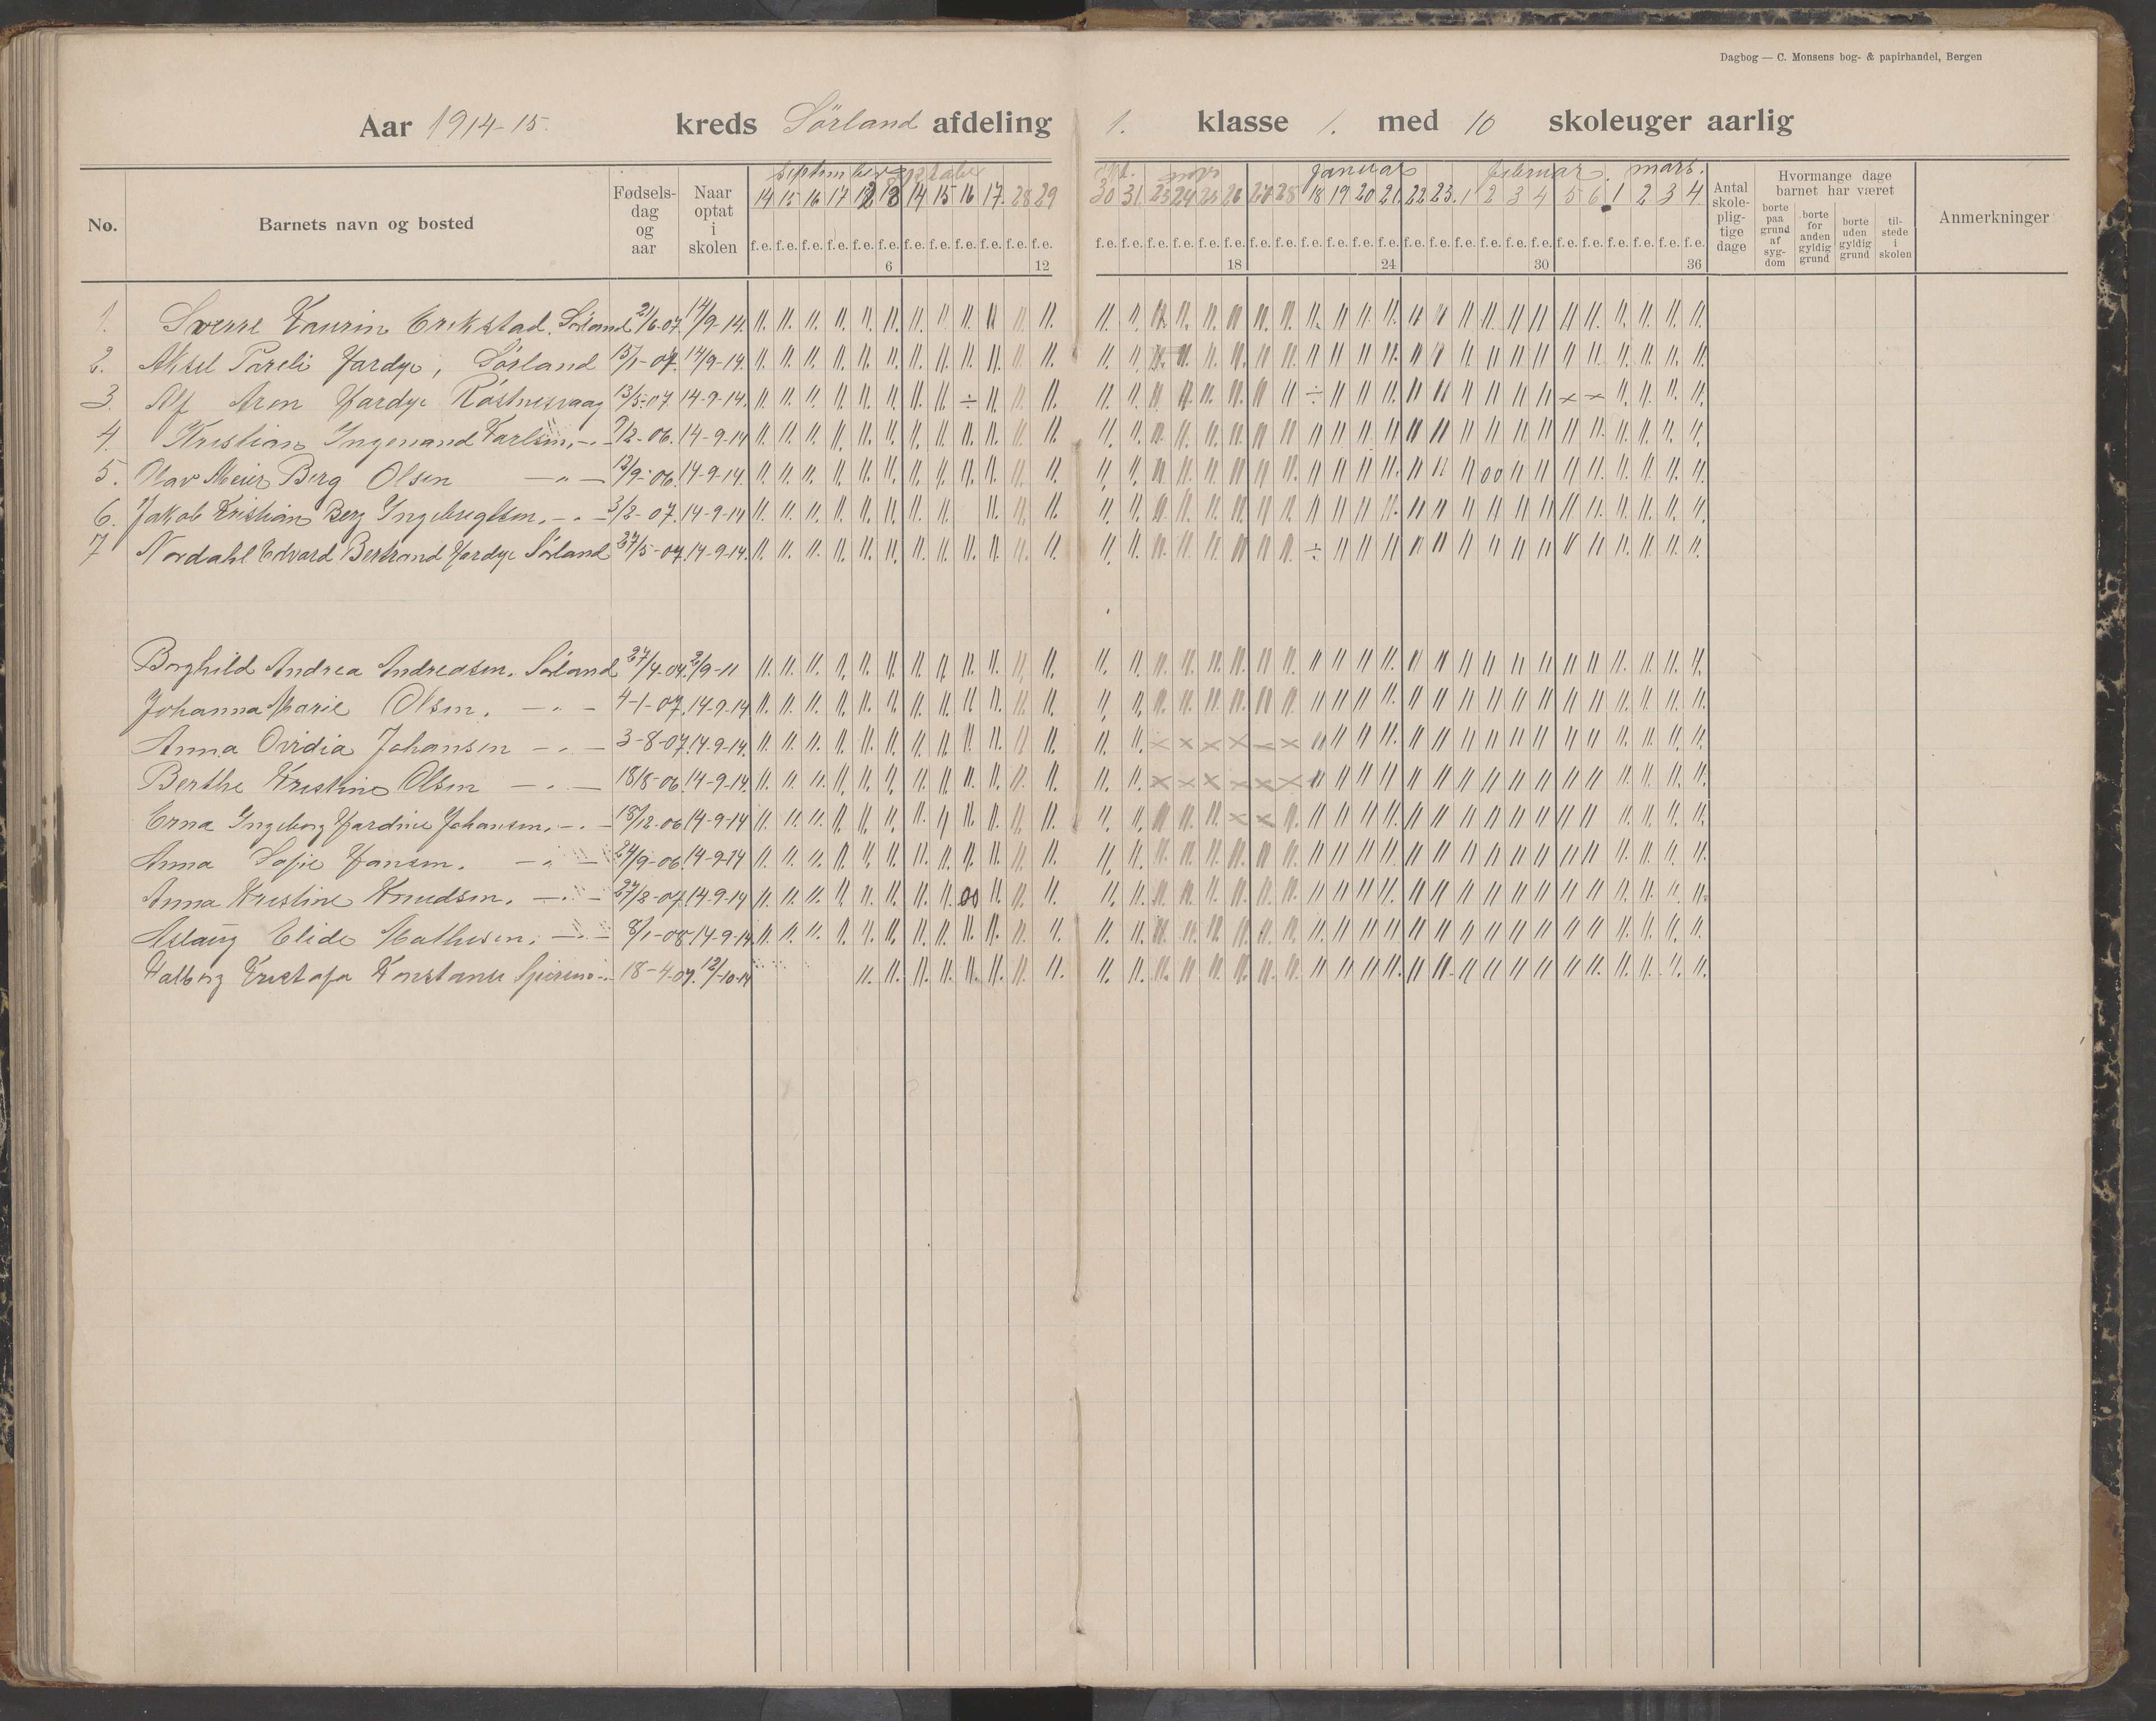 Dagbog — C. Monsens bog- & papirhandel, Bergen
Aar 1914-15. kreds Sörland afdeling 1. klasse 1. med 10 skoleuger aarlig
No. Barnets navn og bosted Fødsels-dag og aar Naar optat i skolen
september oktober okt. novr januar februar. mars.
14 15 16 17 12 13 14 15 16 17. 28 29 30 31. 23 24 25 26 27 28 18 19 20 21. 22 23. 1 2 3 4 5 6 1 2 3 4
f.e. f.e. f.e. f.e. f.e. f.e. f.e. f.e. f.e. f.e. f.e. f.e. f.e. f.e. f.e. f.e. f.e. f.e. f.e. f.e. f.e. f.e. f.e. f.e. f.e. f.e. f.e. f.e. f.e. f.e. f.e. f.e. f.e. f.e. f.e. f.e.
6 12 18 24 30 36
Antal skole-plig-tige dage
Hvormange dage barnet har været
borte paa grund af syg-dom
borte for anden gyldig grund
borte uden gyldig grund
til-stede i skolen
Anmerkninger
1. Sverre Laurin Erikstad. Sörland 2/6-07 14/9-14.
2. Aksel Pareli Hardye, Sörland 15/1-07. 14/9-14.
3. Alf Aron Hardye Röstnesvaag 13/5-07 14-9-14.
4. Kristian Ingemand Karlsen. -"- 9/2-06. 14-9-14
5. Olav Meier Berg Olsen -"- 13/9-06. 14-9-14.
6. Jakob Kristian Berg Ingebrigtsen. -"- 3/2-07. 14-9-14
7 Nordahl Edvard Bertrand Hardye Sörland 27/5-07. 14-9-14.
Borghild Andrea Andreasen. Sörland 27/4-04. 2/9-11
Johanna Marie Olsen. -"- 4-1-07. 14-9-14
Anna Ovidia Johansen -"- 3-8-07. 14-9-14.
Berthe Kristine Olsen -"- 18/8-06. 14-9-14.
Erna Ingeborg Hardine Johansen. -"- 18/12-06. 14-9-14
Anna Sofie Hansen. -"- 24/9-06. 14-9-14
Anna Kristine Knudsen. -"- 27/3-07 14-9-14
Aslaug Elide Mathisen. -"- 8/1-08 14-9-14.
Valborg Kristofa Konstanse 18-4-07. 12/10-14